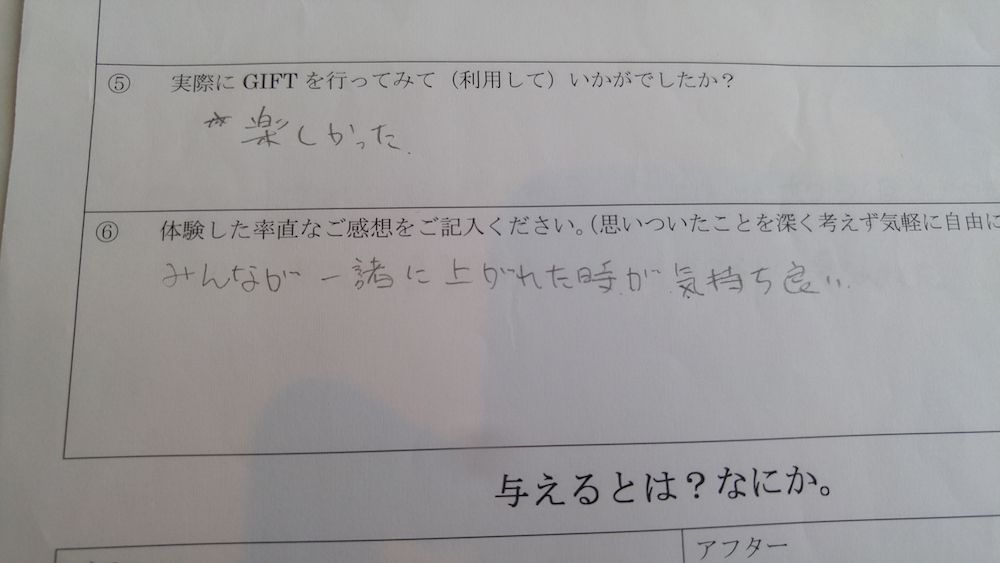 ⑤ 実際に GIFT を行ってみて（利用して）いかがでしたか？
楽しかった.
⑥ 体験した率直なご感想をご記入ください。（思いついたことを深く考えず気軽に自由に
みんなが一諸に上がれた時が気持ち良い.
与えるとは？なにか。
アフター